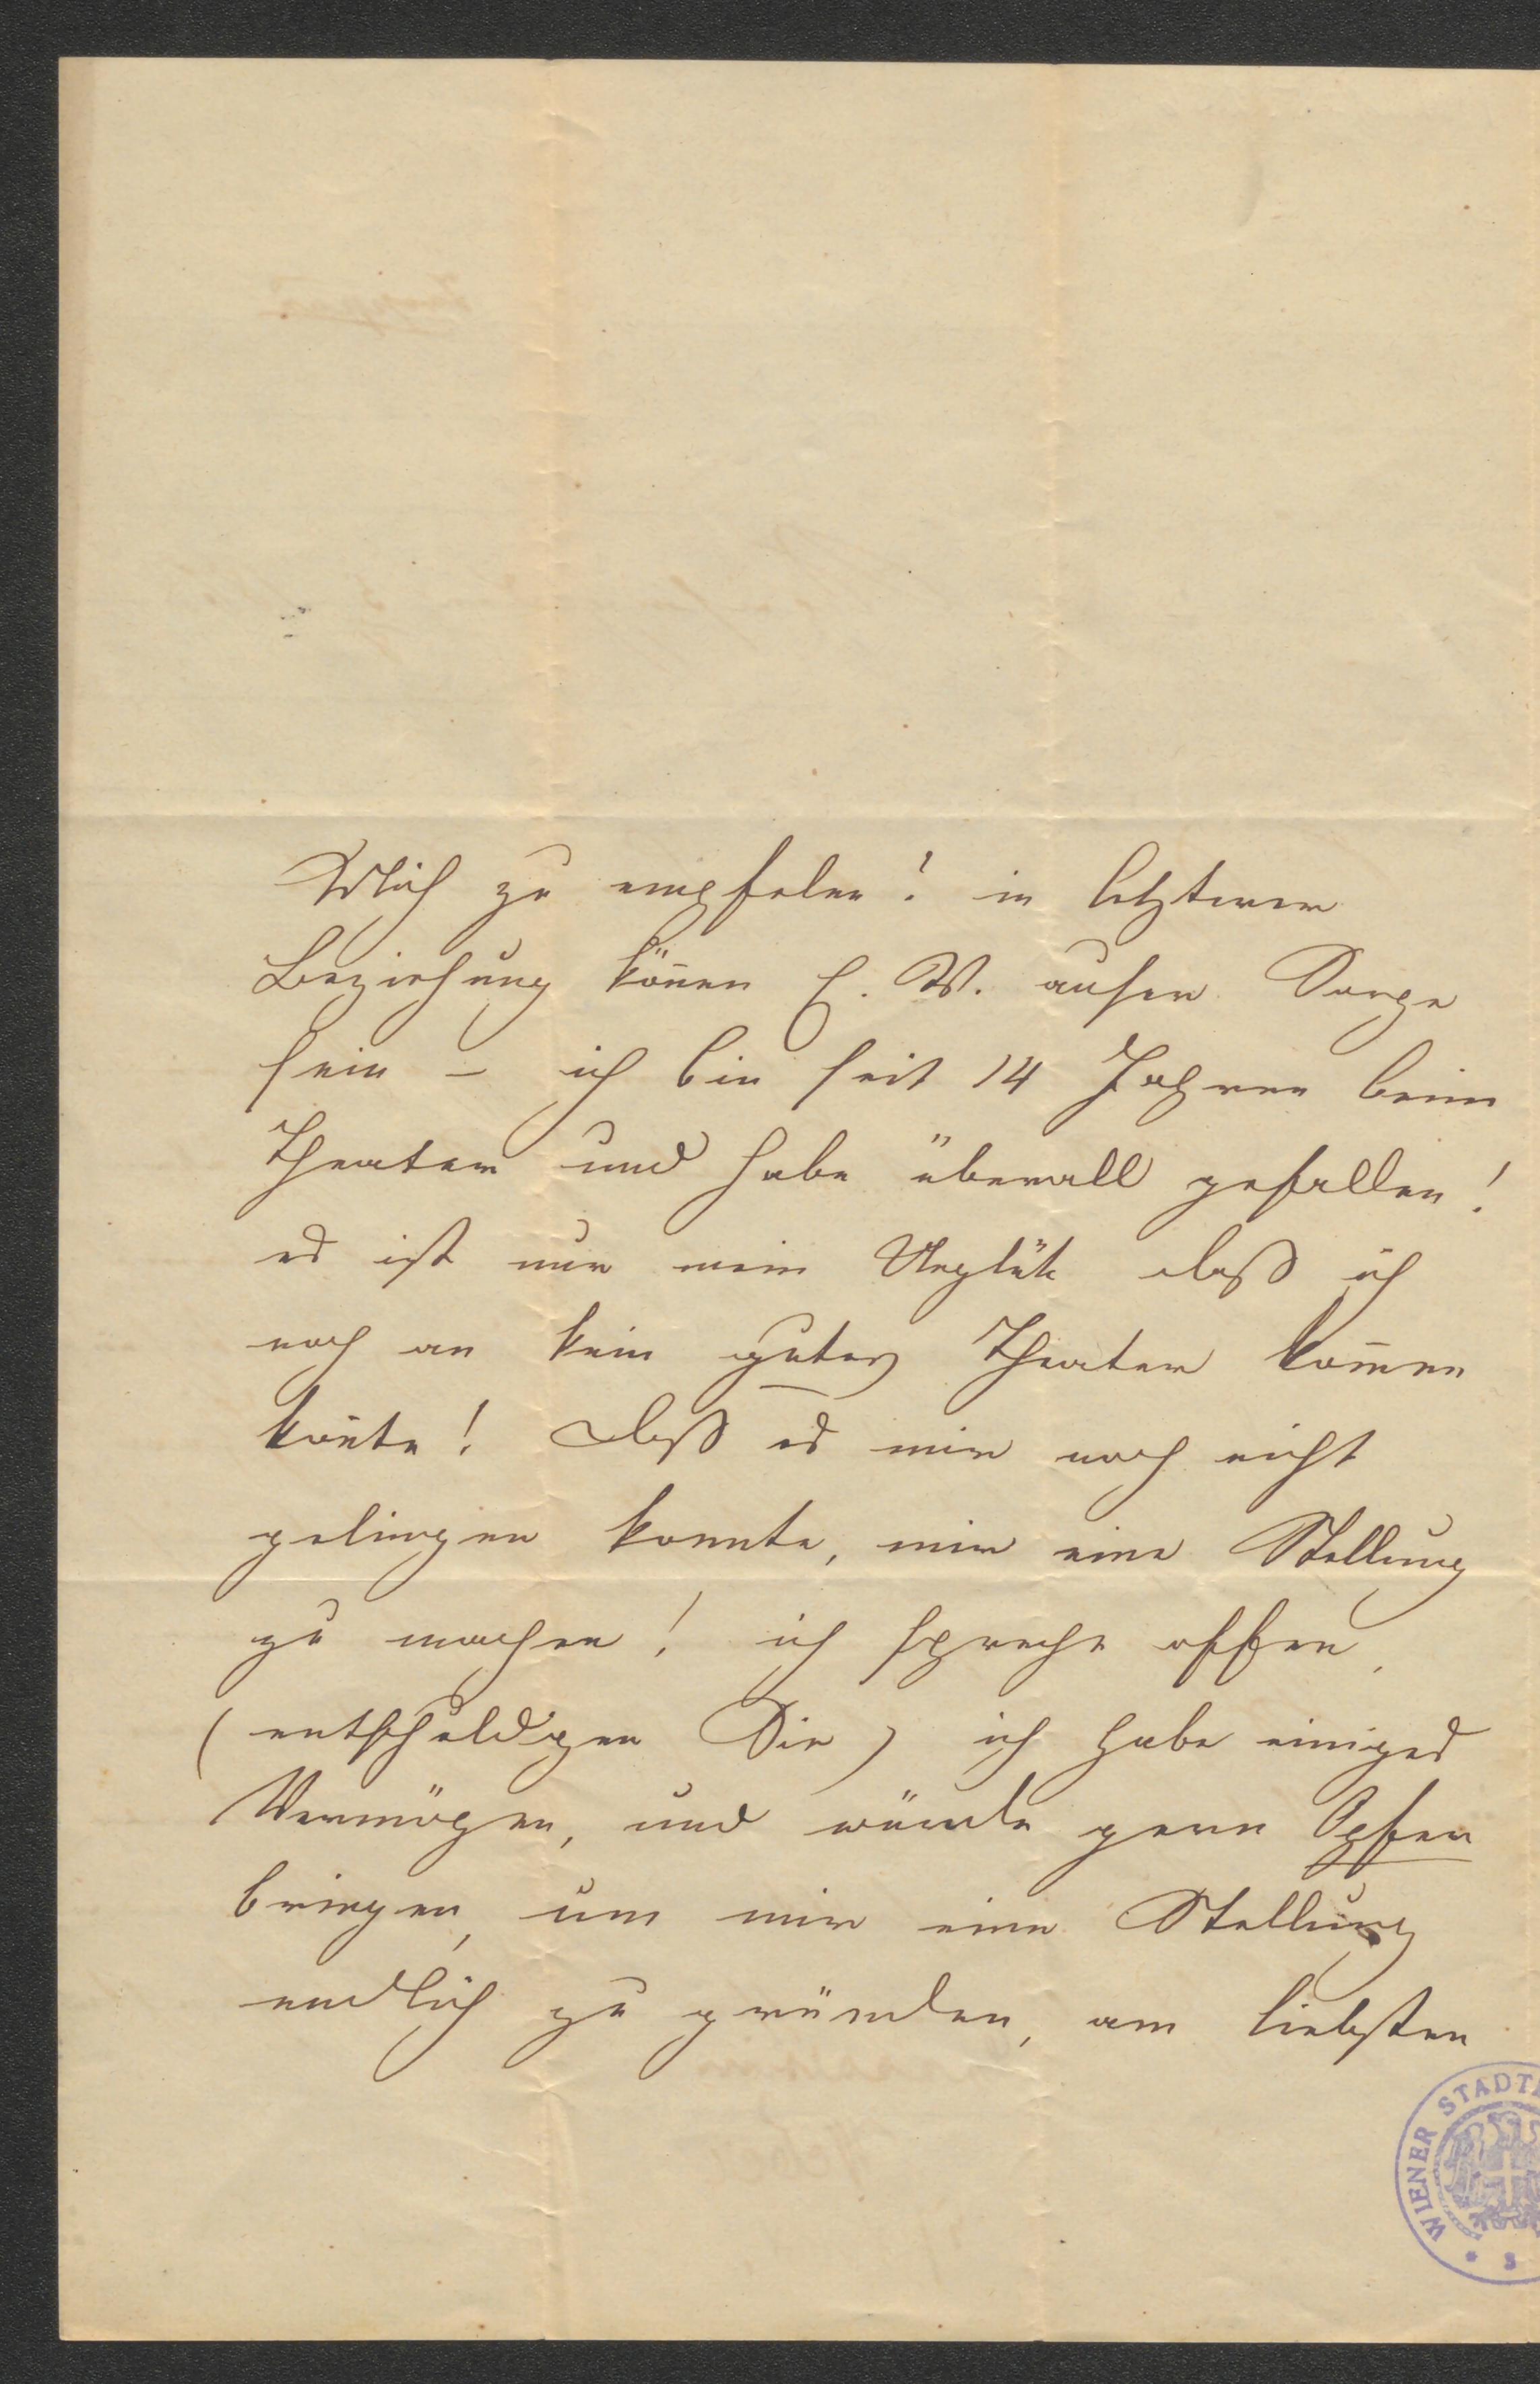 Mich zu empfelen! in letzterer
Beziehung kön̄en E. W. auser Sorge
sein – ich bin seit 14 Jahren beim
Theater und habe überall gefallen!
es ist nur mein Unglük daß ich
noch an kein gutes Theater kom̄en
kon̄te! daß es mir noch nicht
gelingen konnte, mir eine Stellung
zu machen! ich spreche offen,
(entschuldigen Sie) ich habe einiges
Vermögen, und würde gern Opfer
bringen, um mir eine Stellung
endlich zu gründen, am liebsten
WIENER STADT